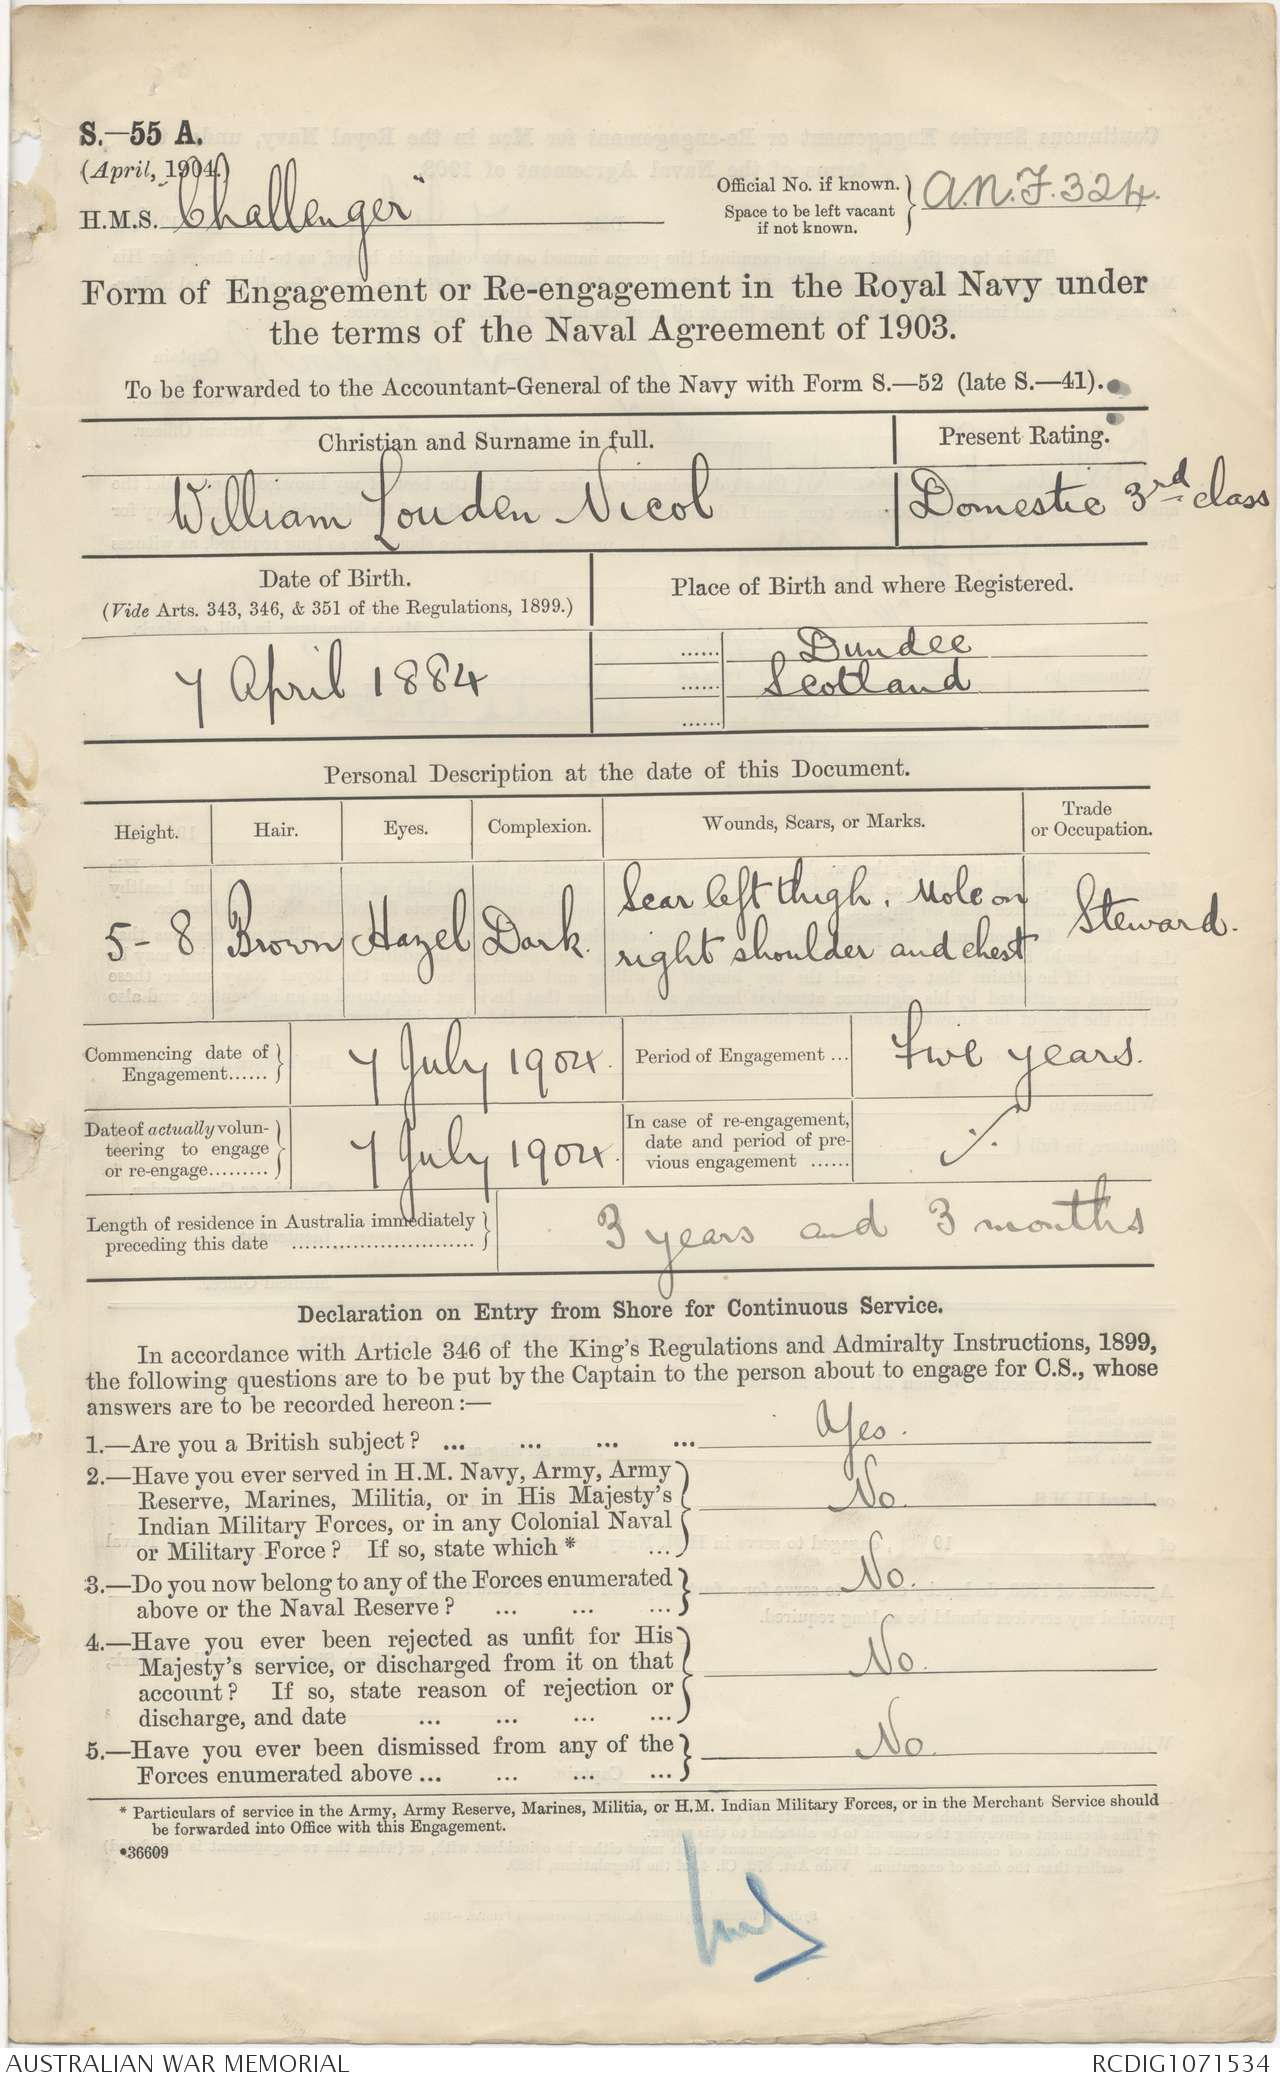 S.—55 A.
(April, 1904.)
H.M.S. "Challenger"
Official No. if known.
Space to be left vacant
if not known.
A.N.F. 324.
Form of Engagement or Re-engagement in the Royal Navy under
the terms of the Naval Agreement of 1903.
To be forwarded to the Accountant-General of the Navy with Form S.—52 (late S.—41).
Christian and Surname in full.
Present Rating.
William Louden Nicol
Domestic 3rd class
Date of Birth.
(Vide Arts. 343, 346, & 351 of the Regulations, 1899.)
Place of Birth and where Registered.
7 April 1884
...... Dundee
...... Scotland
......
Personal Description at the date of this Document.
Height.
Hair.
Eyes.
Complexion.
Wounds, Scars, or Marks.
Trade
or Occupation.
5-8
Brown
Hazel
Dark.
Scar left thigh. Mole on
right shoulder and chest
Steward.
Commencing date of
Engagement......
7 July 1904.
Period of Engagement ...
Five years.
Date of actually volun-
teering to engage
or re-engage.........
7 July 1904.
In case of re-engagement,
date and period of pre-
vious engagement ......
./.
Length of residence in Australia immediately
preceding this date ............................
3 years and 3 months
Declaration on Entry from Shore for Continuous Service.
In accordance with Article 346 of the King's Regulations and Admiralty Instructions, 1899,
the following questions are to be put by the Captain to the person about to engage for C.S., whose
answers are to be recorded hereon :—
1.—Are you a British subject? ... ... ... ... Yes.
2.—Have you ever served in H.M. Navy, Army, Army
Reserve, Marines, Militia, or in His Majesty's
Indian Military Forces, or in any Colonial Naval
or Military Force? If so, state which * ...
No.
3.—Do you now belong to any of the Forces enumerated
above or the Naval Reserve? ... ... ...
No.
4.—Have you ever been rejected as unfit for His
Majesty's service, or discharged from it on that
account? If so, state reason of rejection or
discharge, and date ... ... ... ...
No.
5.—Have you ever been dismissed from any of the
Forces enumerated above ... ... ... ...
No.
* Particulars of service in the Army, Army Reserve, Marines, Militia, or H.M. Indian Military Forces, or in the Merchant Service should
be forwarded into Office with this Engagement.
*36609
AUSTRALIAN WAR MEMORIAL
RCDIG1071534